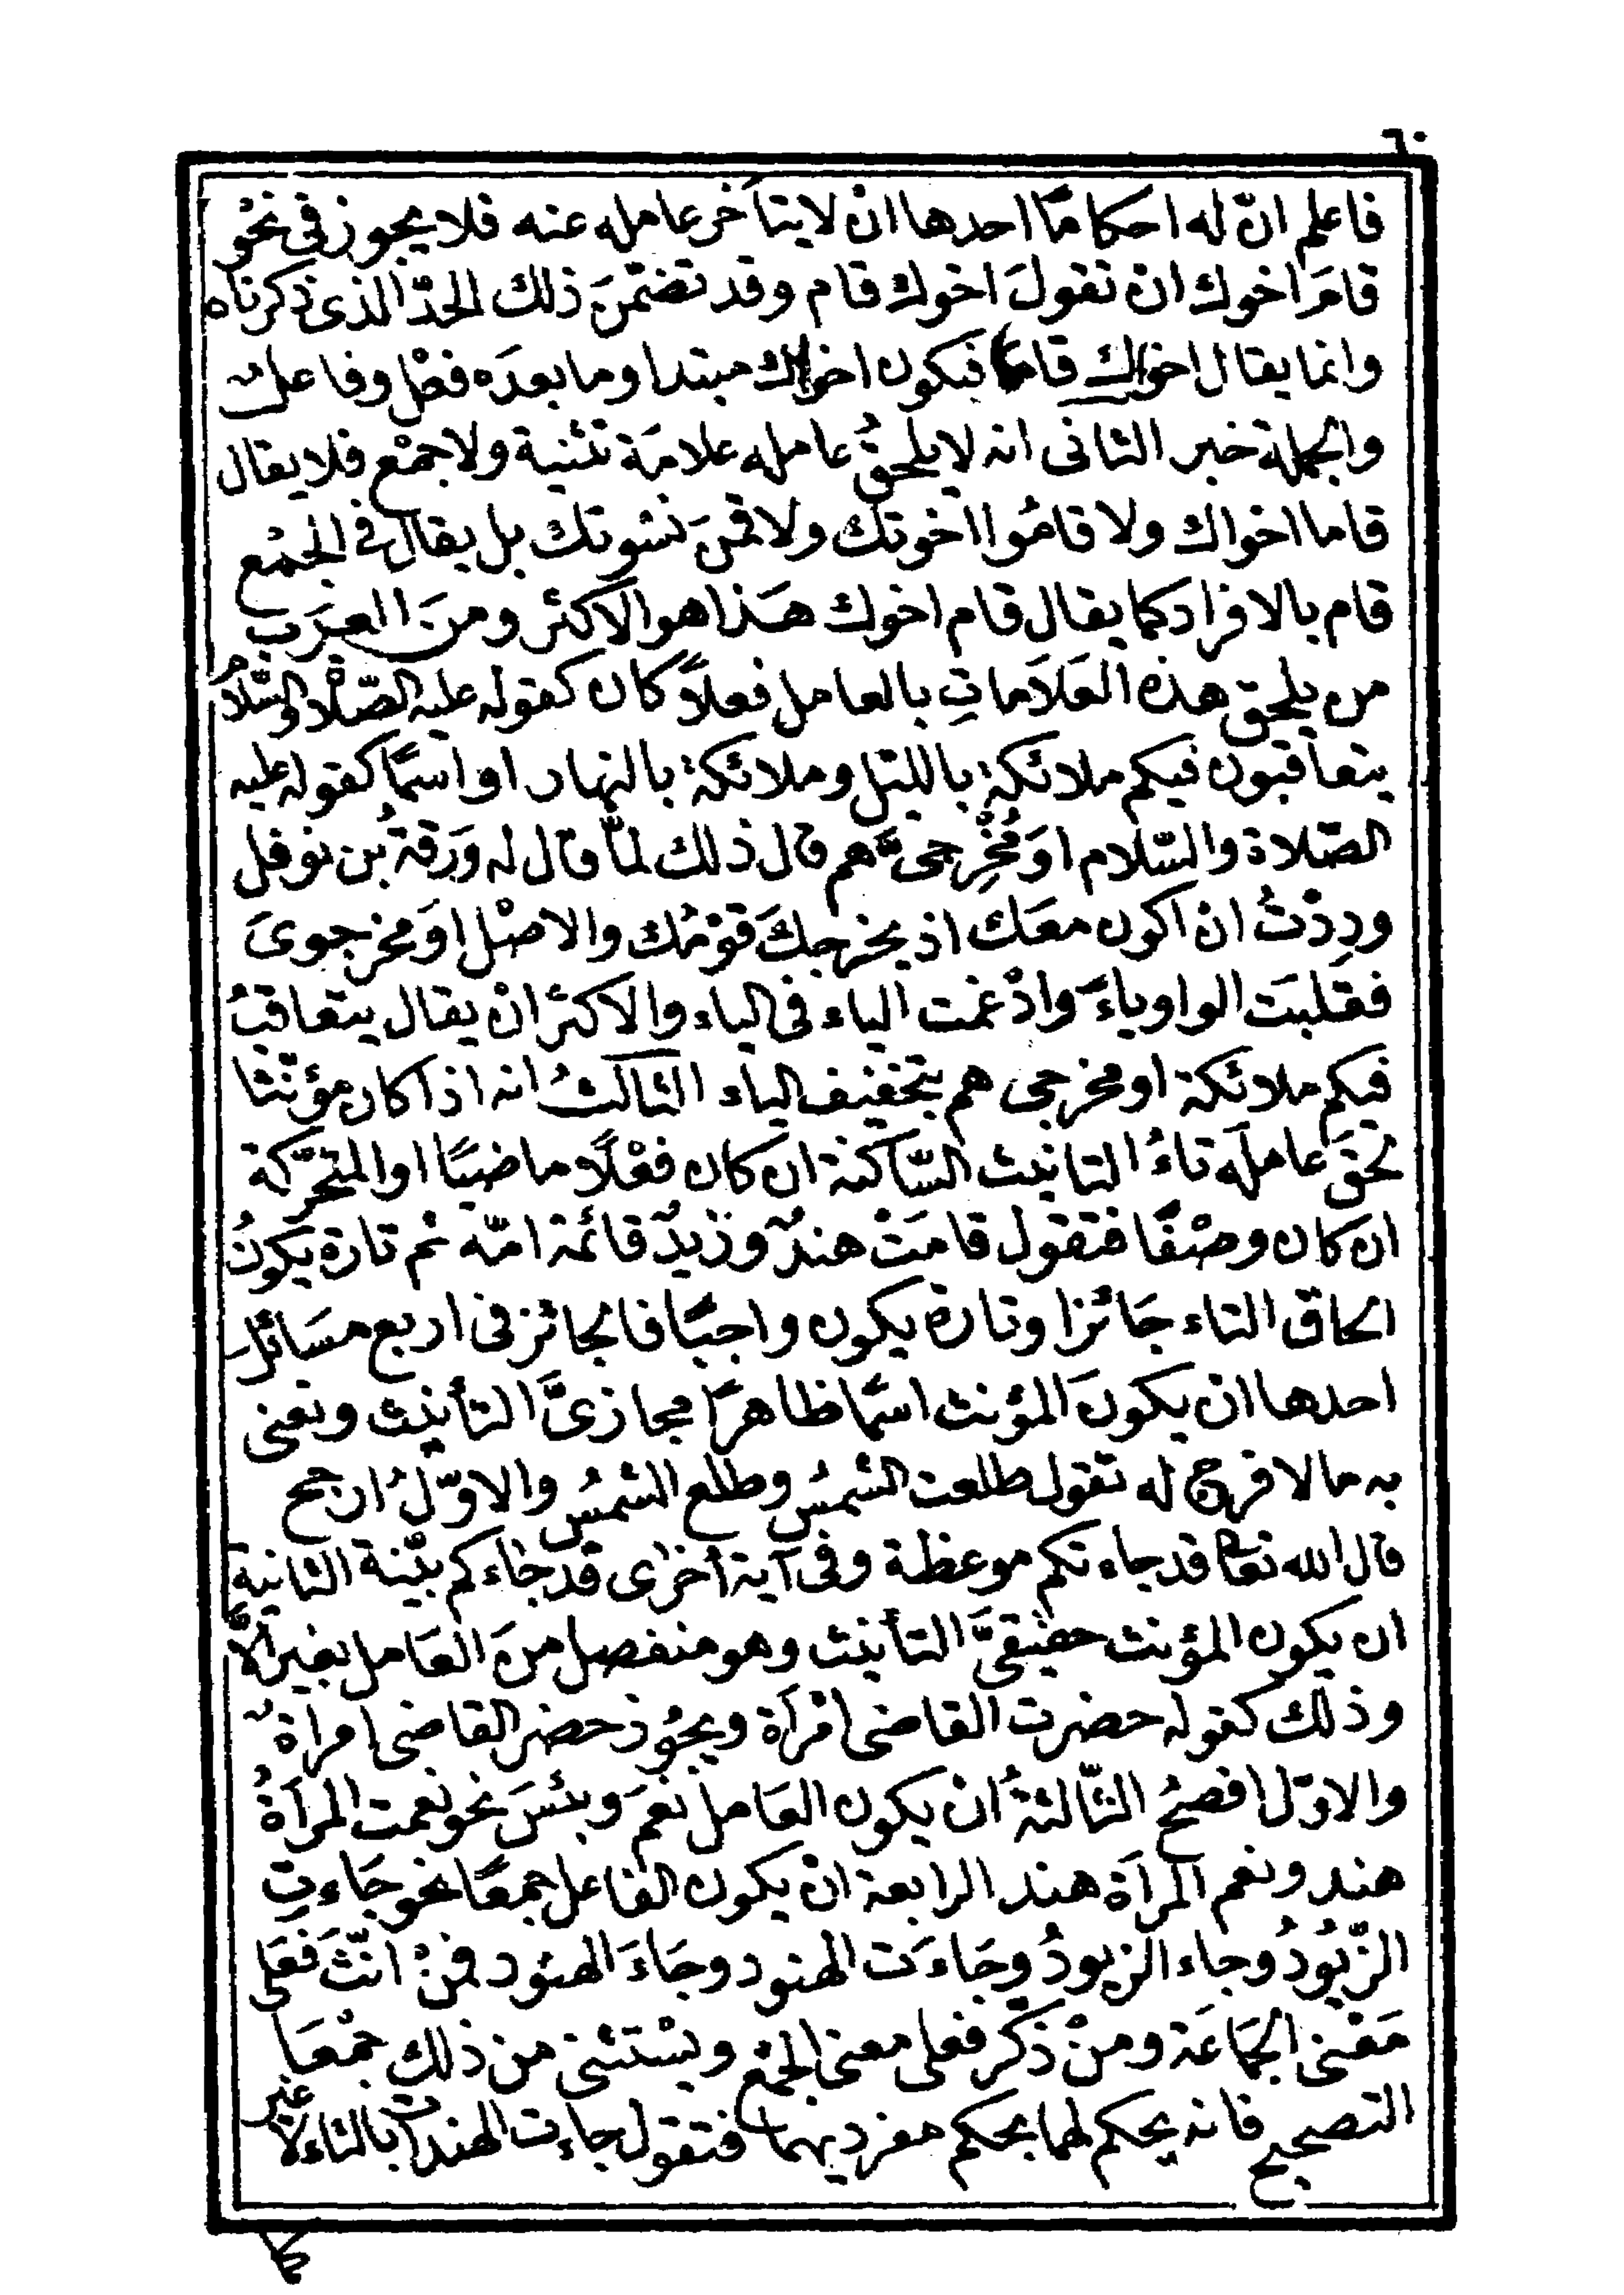 ٦٠
فاعلم انّ له احكامًا احدها ان لا يتأخر عامله عنه فلا يجوز فى نحْو
قامَ اخوك ان تقولَ اخوك قام وقد تضمّنَ ذلك الحدّ الذى ذكرناه
وانما يقال اخواك قاما فيكون اخواك مبتدا وما بعدَه فعْل وفاعل
والجملة خبر الثانى انه لا يلحقُ عامله علامَة تثنية ولا جمْع فلا يقال
قاما اخواك ولا قامُوا اخوتك ولا قمْنَ نسْوتك بل يقال فى الجمْع
قام بالافراد كما يقال قام اخوك هَذا هو الاكثر ومنَ العرَب
من يلحق هذه العَلَاماتِ بالعامل فعلًا كان كقوله عليه الصّلاة والسّلامُ
يتعاقبون فيكم ملائكة بالليل وملائكة بالنهار او اسمًا كقوله عليه
الصّلاة والسّلام اوَمُخْرِجىَّ هم قال ذلك لمّا قال له وَرَقةُ بن نوفل
ودِدْتُ ان اكون معَك اذ يخرجكَ قوْمُك والاصْل اوَ مخرجوىَ
فقلبَت الواو ياءً وادْغمت الياء فى الياء والاكثر انْ يقال يتعاقبُ
فيكم ملائكة او مخرجى هم بتخفيف الياء الثالثُ انه اذا كان مؤنّثا
لحقَ عاملَه تاءُ التانيث السّاكنة ان كان فعْلًا ماضيًا او المتحرّكة
ان كان وصْفًا فتقول قامَتْ هندٌ وزيدٌ قائمة امّه ثم تارة يكونُ
الحاق التاء جَائزا وتارة يكون واجبًا فالجائز فى اربع مسَائل
احدها ان يكونَ المؤنث اسمًا ظاهرًا مجازىَّ التأنيث ونعنى
به ما لا فرج له تقول طلعت الشمسُ وطلع الشمسُ والاوّلُ ارجح
قال الله تعالى قد جاءتكم موعظة وفى آية أخرى قد جَاءكم بيّنة الثانية
ان يكون المؤنث حقيقىَّ التأنيث وهو منفصل منَ العَامل بغير الّا
وذلك كقوله حضرت القاضى امْرَأة ويجُوز حضر القاضى امرأةٌ
والاوّل افصحُ الثّالثةُ انْ يكون العَامل نعمَ وبئسَ نحو نعمت المرأةُ
هند ونعم المرأة هند الرابعة انْ يكون الفاعل جمعًا نحو جَاءتِ
الزّيُودُ وجاء الزيودُ وجَاءَت الهنود وجَاءَ الهنود فمنْ انّثَ فعَلى
مَعْنى الجمَاعَة ومنْ ذكّر فعلى معنى الجمْع ويسْتثنى من ذلك جمْعَا
التصحيح فانه يحكم لهما بحكم مفرديهما فتقول جاءت الهندات بالتاء لا غير
كما